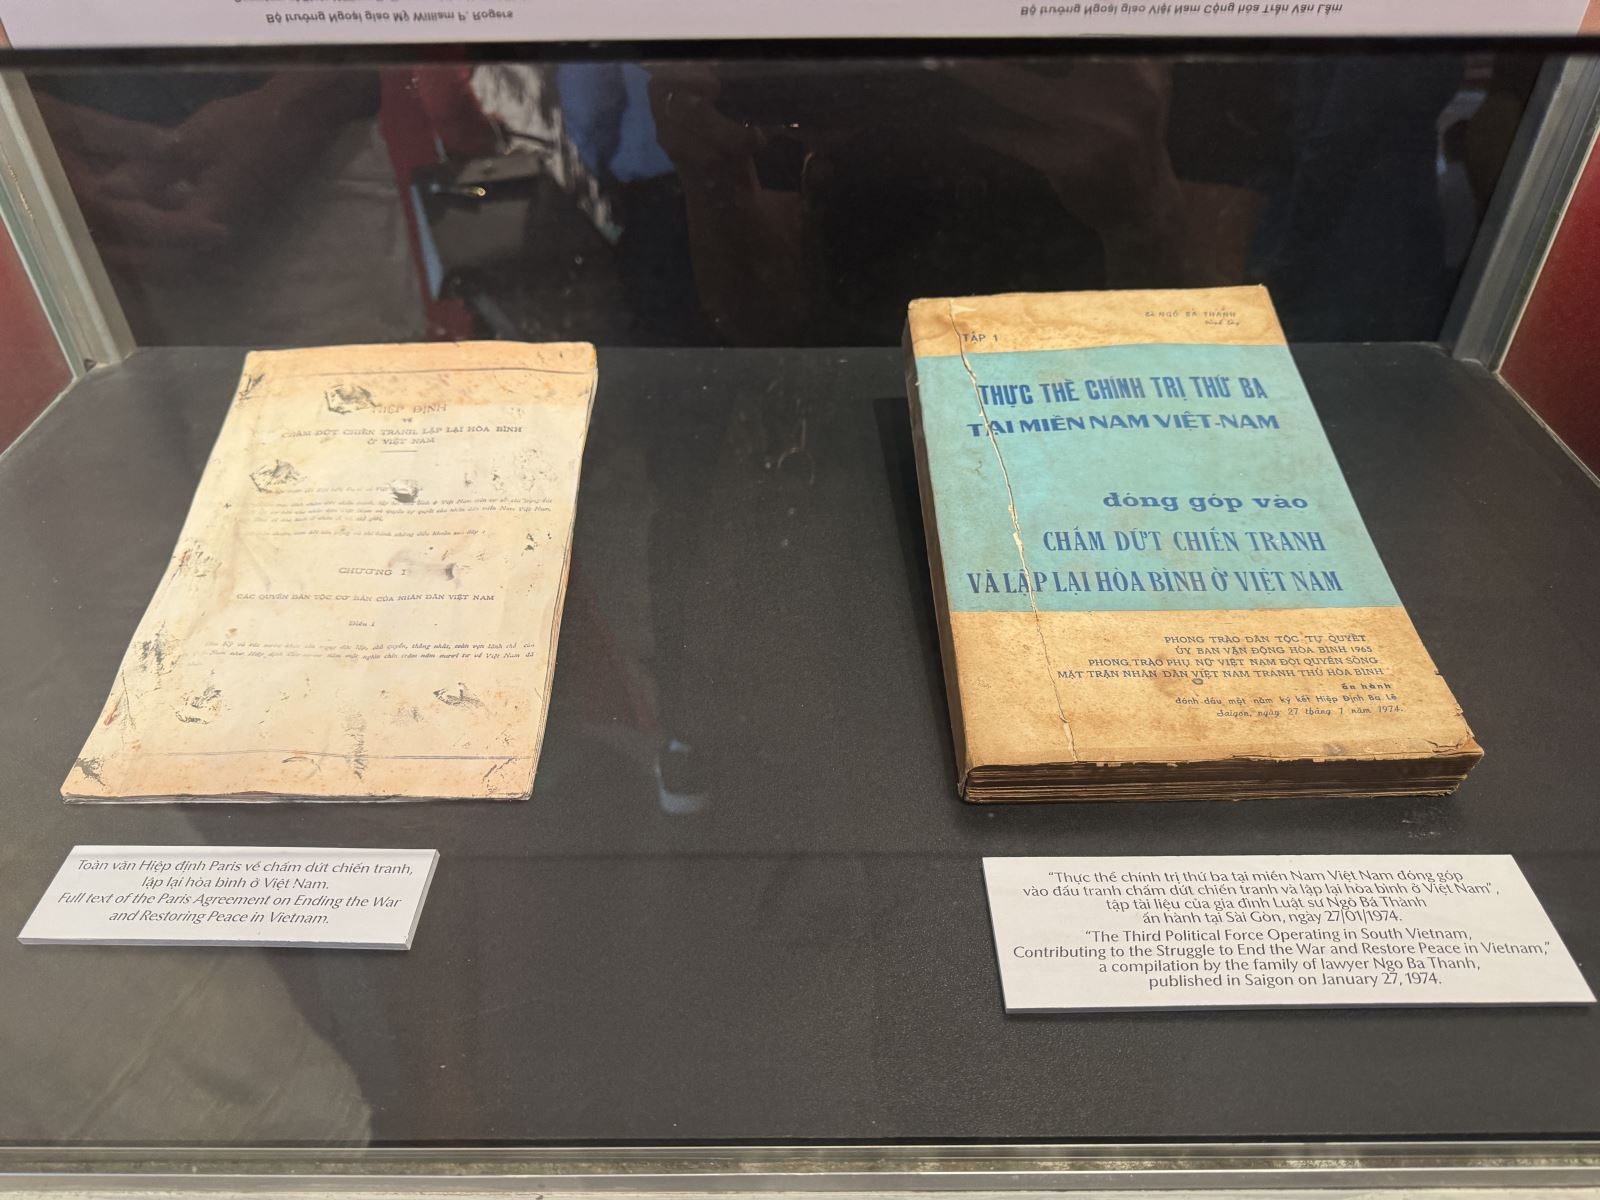 Bộ trưởng Ngoại giao Mỹ William P. Rogers
Bộ trưởng Ngoại giao Việt Nam Cộng hòa Trần Văn Lắm
HIỆP ĐỊNH
VỀ
CHẤM DỨT CHIẾN TRANH, LẬP LẠI HÒA BÌNH
Ở VIỆT NAM
CHƯƠNG I
CÁC QUYỀN DÂN TỘC CƠ BẢN CỦA NHÂN DÂN VIỆT NAM
Điều 1
Bà NGÔ BÁ THÀNH
TẬP 1
THỰC THỂ CHÍNH TRỊ THỨ BA
TẠI MIỀN NAM VIỆT-NAM
đóng góp vào
CHẤM DỨT CHIẾN TRANH
VÀ LẬP LẠI HÒA BÌNH Ở VIỆT NAM
PHONG TRÀO DÂN TỘC TỰ QUYẾT
ỦY BAN VẬN ĐỘNG HÒA BÌNH 1965
PHONG TRÀO PHỤ NỮ VIỆT NAM ĐÒI QUYỀN SỐNG
MẶT TRẬN NHÂN DÂN VIỆT NAM TRANH THỦ HÒA BÌNH
ấn hành
đánh dấu một năm ký kết Hiệp Định Ba Lê
Saigon, ngày 27 tháng 1 năm 1974.
Toàn văn Hiệp định Paris về chấm dứt chiến tranh,
lập lại hòa bình ở Việt Nam.
Full text of the Paris Agreement on Ending the War
and Restoring Peace in Vietnam.
“Thực thể chính trị thứ ba tại miền Nam Việt Nam đóng góp
vào đấu tranh chấm dứt chiến tranh và lập lại hòa bình ở Việt Nam”,
tập tài liệu của gia đình Luật sư Ngô Bá Thành
ấn hành tại Sài Gòn, ngày 27/01/1974.
“The Third Political Force Operating in South Vietnam,
Contributing to the Struggle to End the War and Restore Peace in Vietnam,”
a compilation by the family of lawyer Ngo Ba Thanh,
published in Saigon on January 27, 1974.